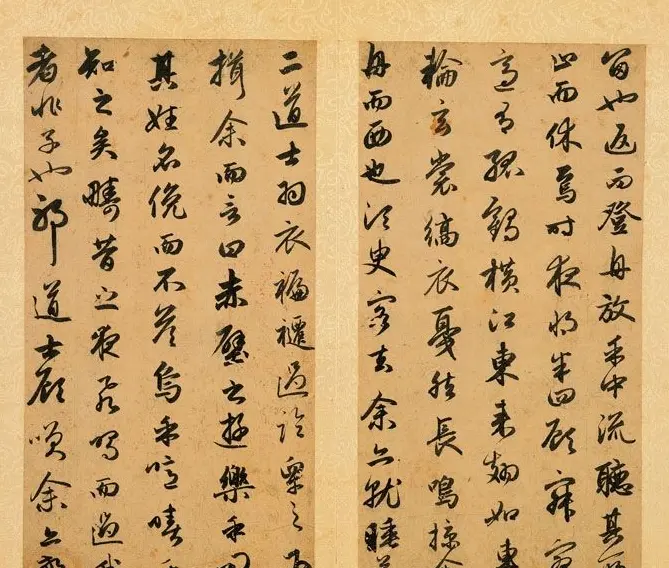 留也返而登舟放乎中流聽其
止而休焉時夜將半四顧寂寥
適有孤鶴橫江東來翅如車
輪玄裳縞衣戛然長鳴掠余
舟而西也須臾客去余亦就睡
二道士羽衣蹁躚過臨皋之下
揖余而言曰赤壁之遊樂乎問
其姓名俛而不答嗚乎噫嘻
知之矣疇昔之夜飛鳴而過我
者非子也耶道士顧笑余亦驚